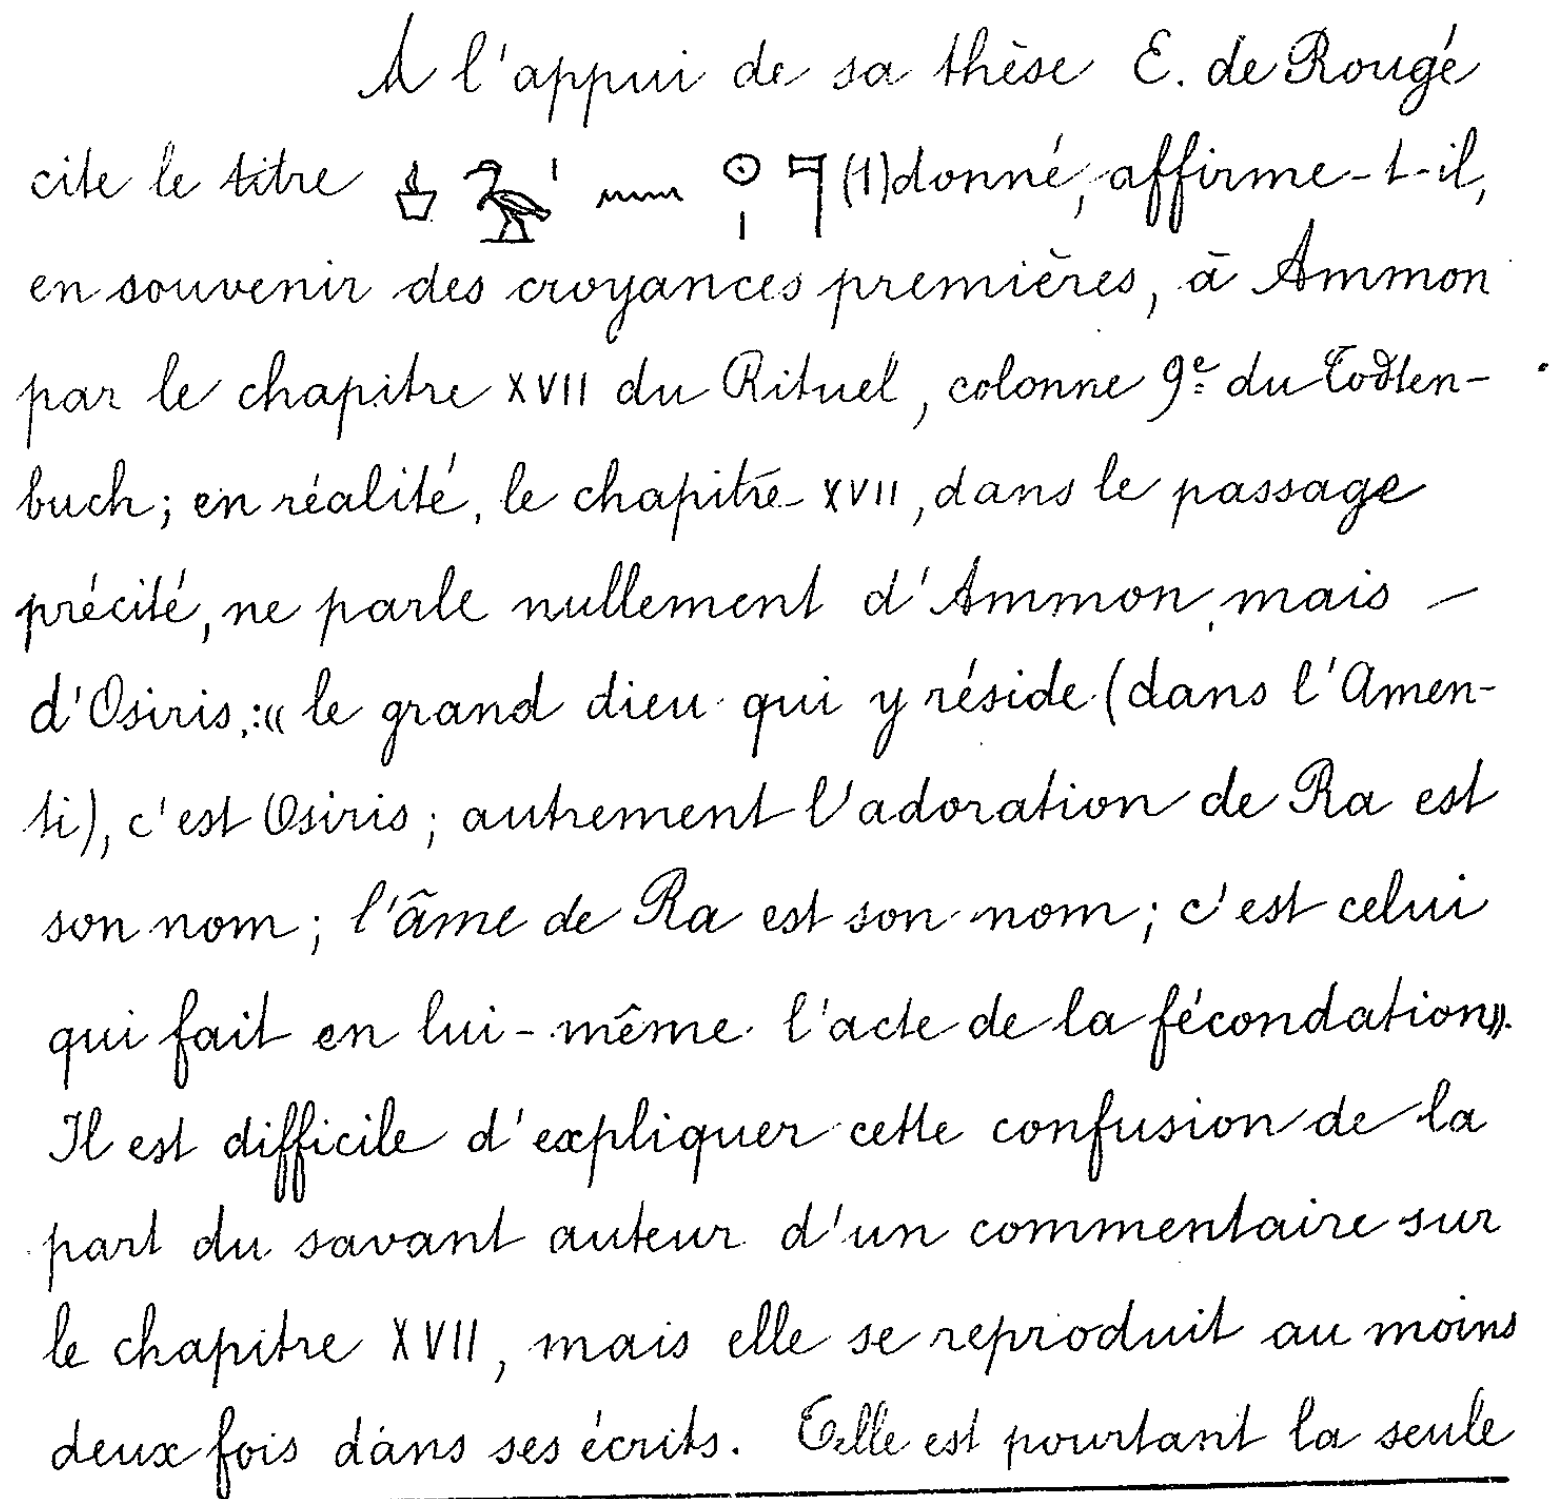 A l'appui de sa thèse E. de Rougé
cite le titre 𓊸 𓅡 𓏤 𓈖 𓇳 𓏤 𓊹 (1) donné, affirme-t-il,
en souvenir des croyances premières, à Ammon
par le chapitre XVII du Rituel, colonne 9e du Todten-
buch; en réalité, le chapitre XVII, dans le passage
précité, ne parle nullement d'Ammon, mais —
d'Osiris: « le grand dieu qui y réside (dans l'Amen-
ti), c'est Osiris; autrement l'adoration de Ra est
son nom; l'âme de Ra est son nom; c'est celui
qui fait en lui-même l'acte de la fécondation».
Il est difficile d'expliquer cette confusion de la
part du savant auteur d'un commentaire sur
le chapitre XVII, mais elle se reproduit au moins
deux fois dans ses écrits. Telle est pourtant la seule